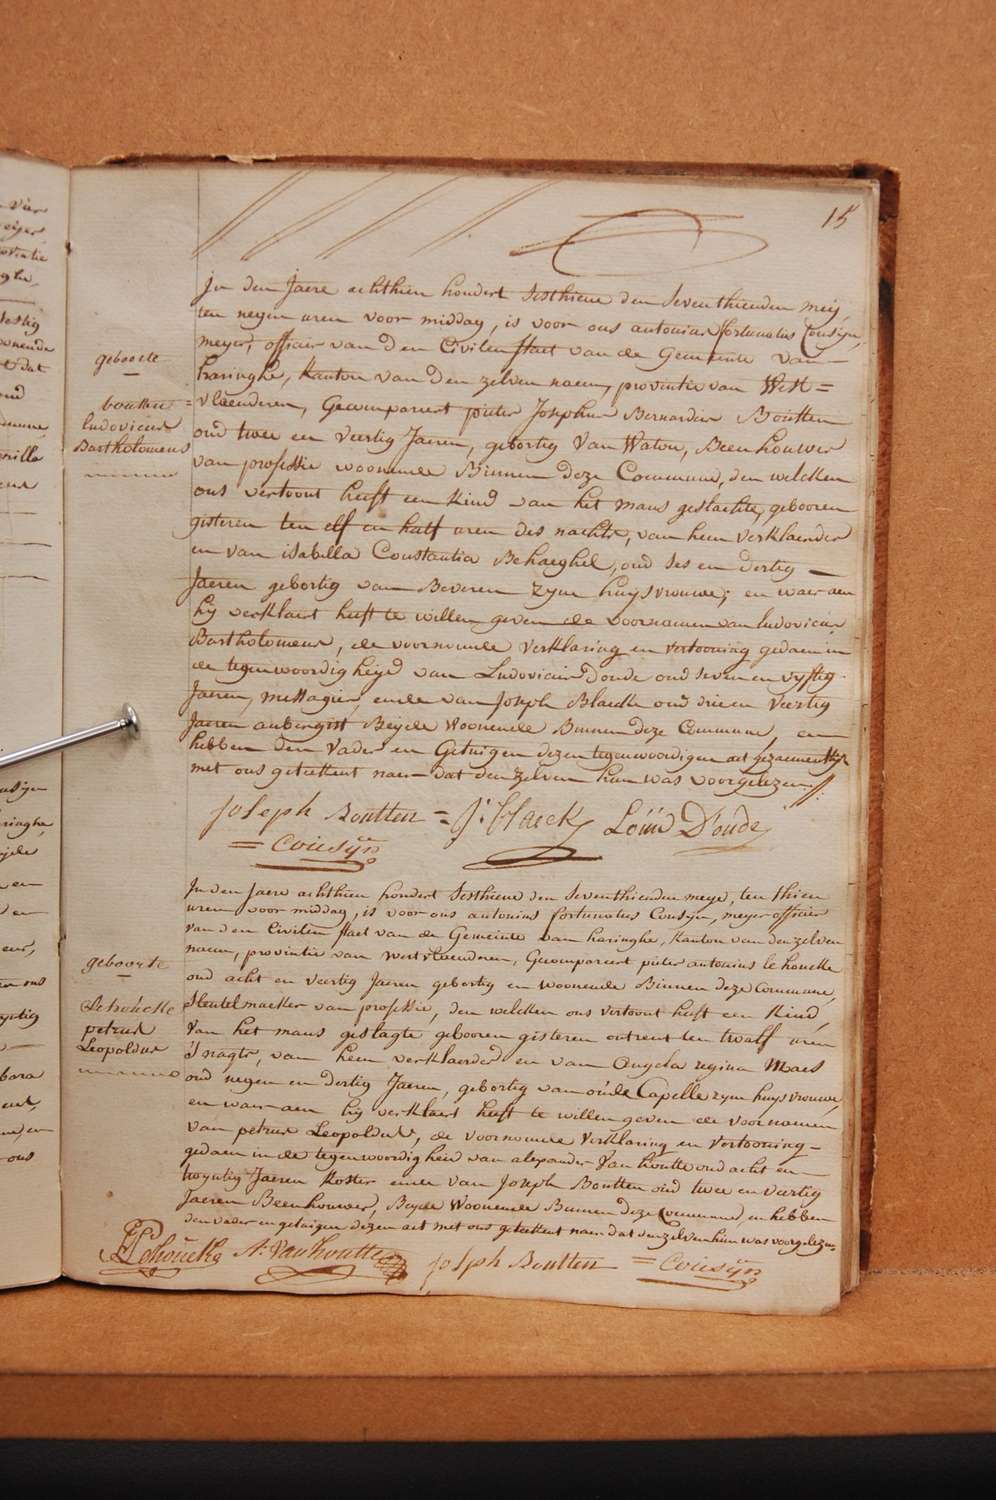 15
In den Jaere achthien hondert sesthiene den seventhienden meij
ten negen uren voor middag, is voor ons antonius fortunatus Cousijn,
meyer, officier van den Civilen staet van de Gemeente van
haringhe, Kanton van den zelven naem, provintie van West=
geboorte
vleenderen, Gecompareert pieter Josephus Bernardus Boutten
boutten
ludovicus
Bartholomeus
oud twee en veertig Jaeren, gebortig van Watou, Beenhouwer
van professie woonende Binnen deze Commune, den welcken
ons vertoont heeft een kind van het mans geslachte, gebooren
gisteren ten elf en half uren des nachts, van hem verklaerder
en van isabella Constantia Behaeghel, oud ses en dertig
Jaeren gebortig van Beveren zyne huysvrouwe; en waer aen
hy verklaert heeft te willen geven de voornamen van ludovicus
Bartholomeus, de voornoemde verklaring en vertooning gedaen in
de tegenwoordigheyd van Ludovicus Doude oud seven en vyftig
Jaeren, messagier, ende van Joseph Blaeck oud drie en veertig
Jaeren aubergist Beyde Woonende Binnen deze Commune, en
hebben den vader en Getuigen dezen tegenwoordigen act gezaementlyk
met ons geteekent naer dat den zelven hun was voorgelezen
Joseph Boutten = J: Blaeck Louis D'oude
= Cousijn
In den Jaere achthien hondert sesthiene den seventhienden meye, ten thien
uren voor middag, is voor ons antonius fortunatus Cousijn, meyer officier
van den Civilen staet van de Gemeente van haringhe, Kanton van den zelven
naem, provintie van westvleenderen, Gecompareert pieter antonius lehoucke
geboorte
Lehoucke
petrus
Leopoldus
oud acht en veertig Jaeren gebortig en woonende Binnen deze Commune,
sleutelmaeker van professie, den welcken ons vertoont heeft een kind
van het mans geslagte gebooren gisteren ontrent ten twalf uren
's nagts, van hem verklaerder en van Angela regina Maes
oud negen en dertig Jaeren, gebortig van oude Capelle zyne huysvrouwe,
en waer aen hy verklaert heeft te willen geven de voornamen
van petrus Leopoldus, de voornoemde verklaring en vertooning
gedaen in de tegenwoordigheid van alexander Van houtte oud acht en
twyntig Jaeren koster ende van Joseph Boutten oud twee en veertig
Jaeren Beenhouwer, Beyde Woonende Binnen deze Commune, en hebben
den vader en getuigen dezen act met ons geteekent naer dat den zelven hun was voorgelezen
Lehoucke A: Vanhoutte Joseph Boutten = Cousijn